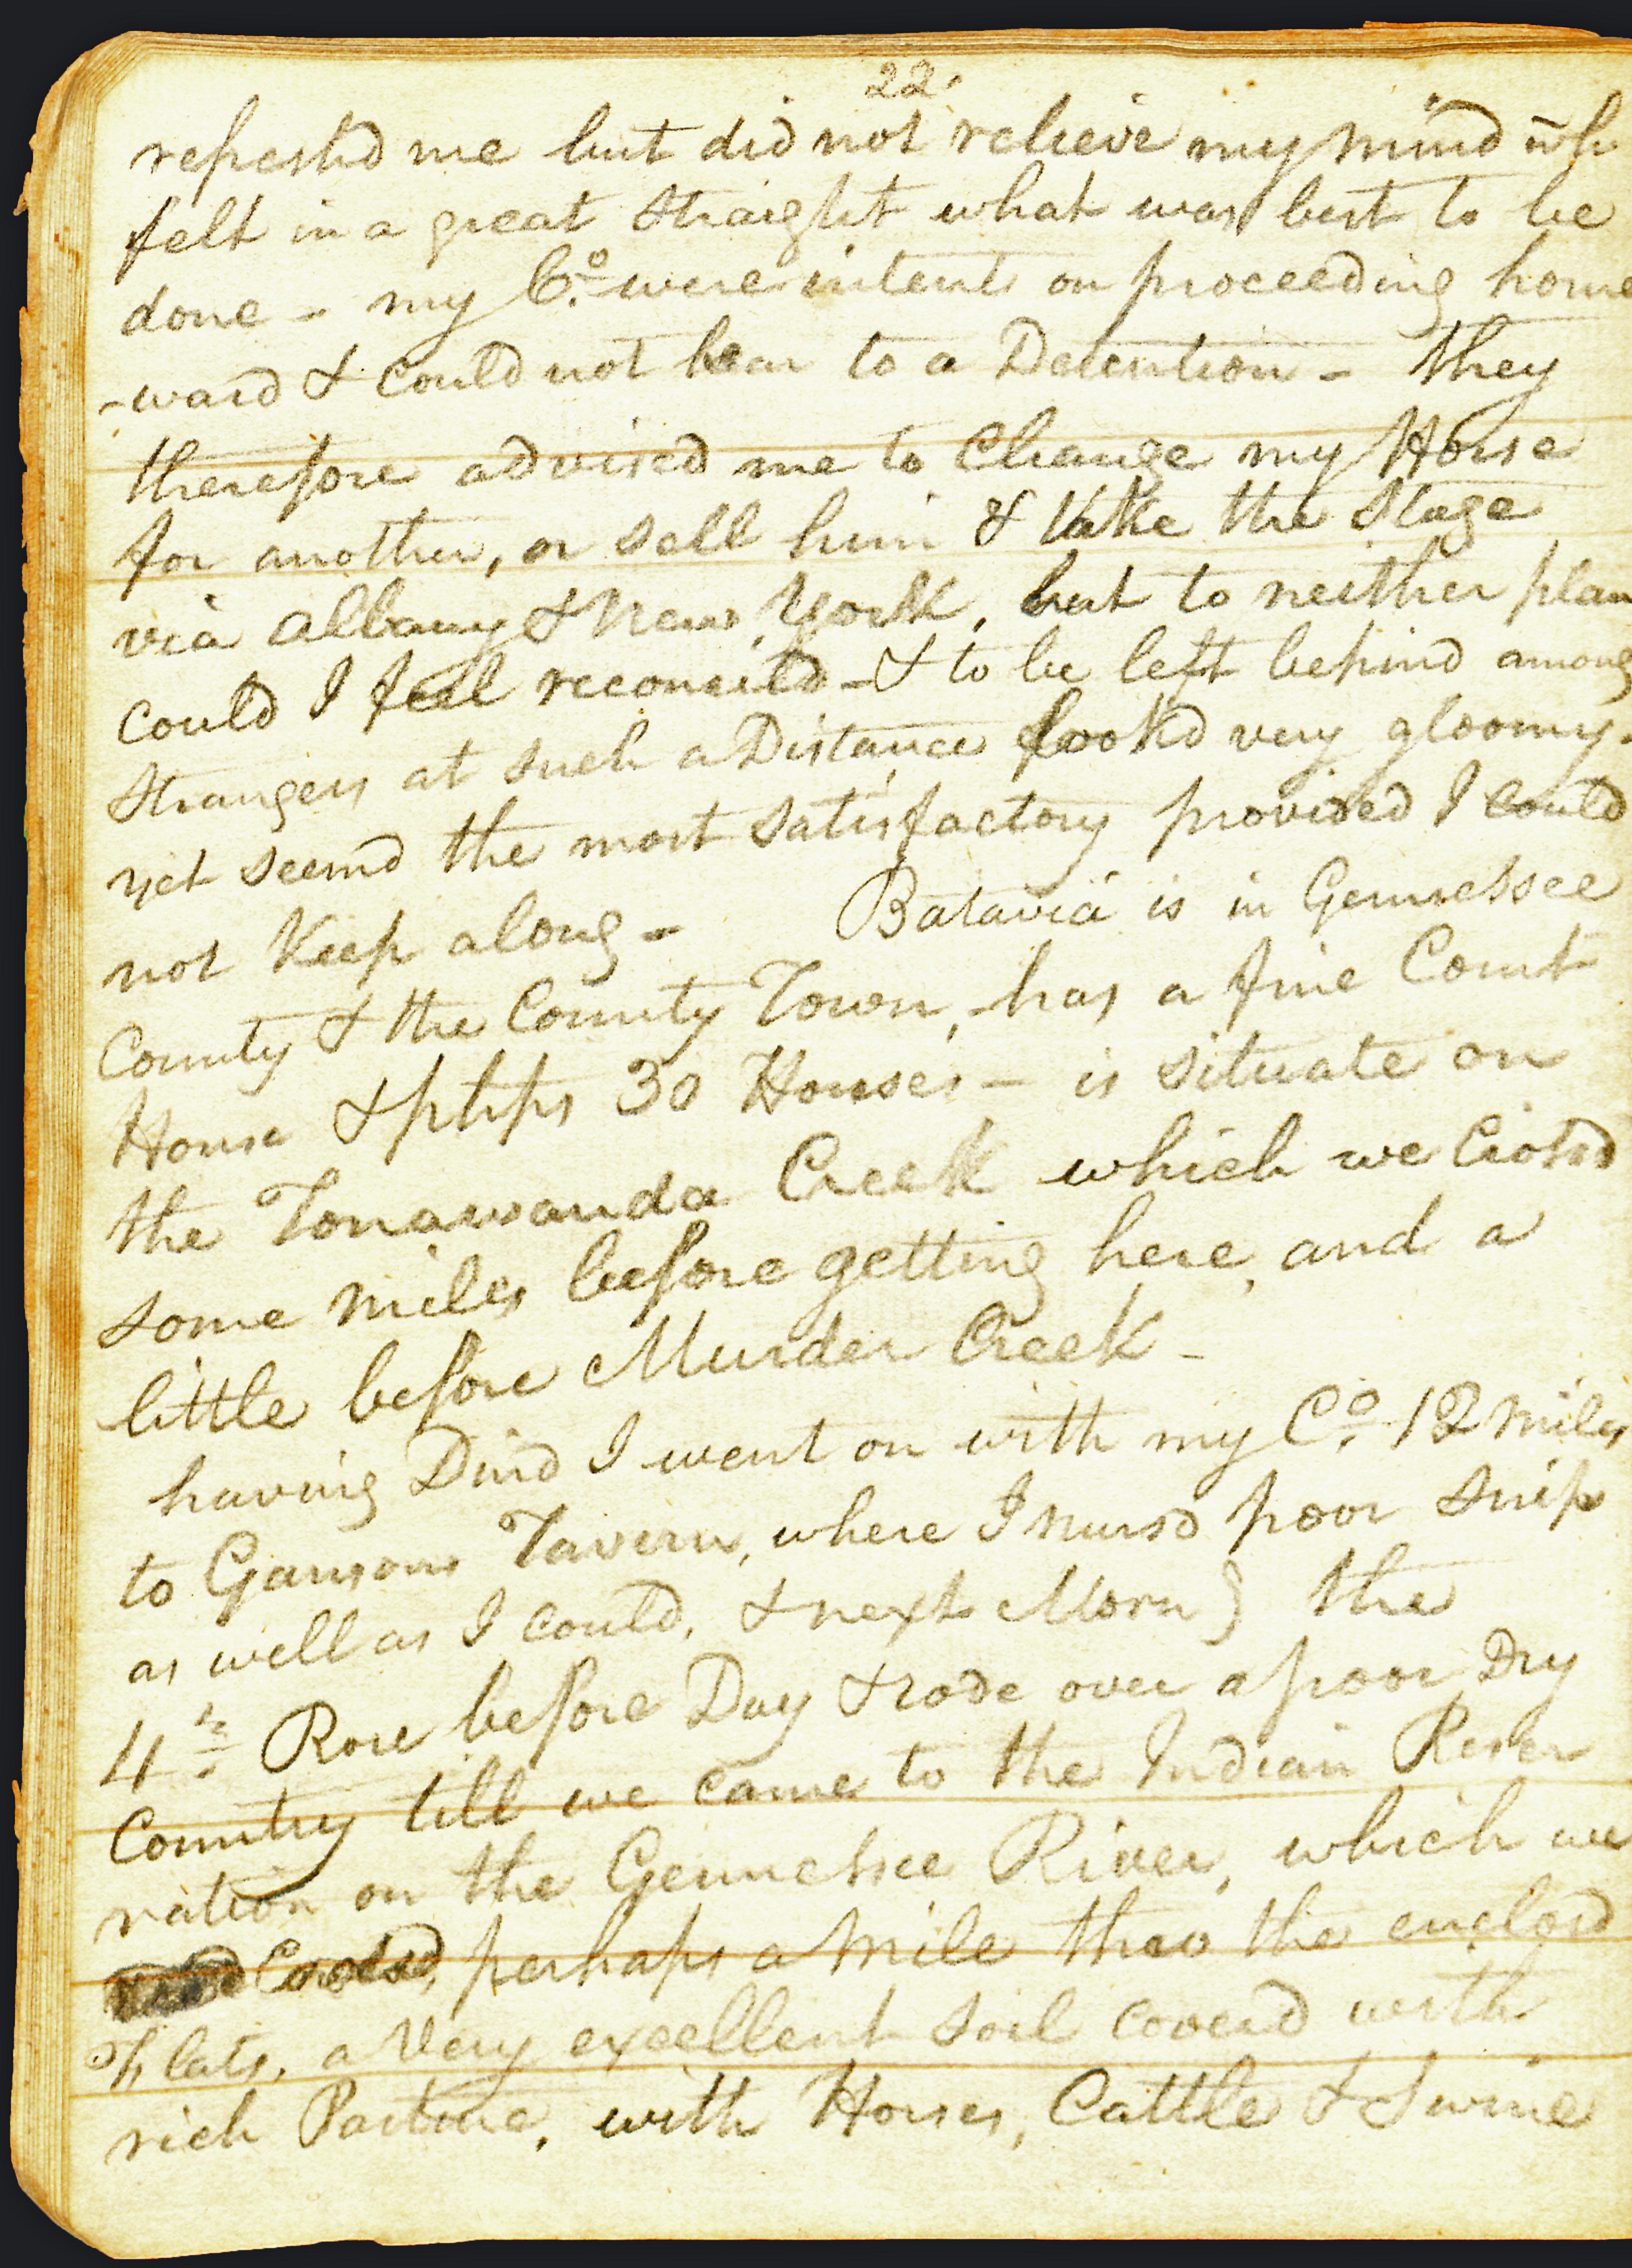 22
refreshd me but did not relieve my mind wh
felt in a great Straight what was best to be
done - my Co. were intent on proceeding home
-ward & Could not bear to a Detention - they
therefore advised me to Change my Horse
for another, or Sell him & take the Stage
via Albany & New York, but to neither plan
Could I feel reconcild - & to be left behind among
Strangers at such a Distance lookd very gloomy -
yet seemd the most Satisfactory provided I Could
not Keep along - Batavia is in Gennessee
County & the County Town, has a fine Court
House & phps 30 Houses - is Situate on
the Tonawanda Creek which we Crossd
Some miles before getting here, and a
little before Murder Creek -
having Dind I went on with my Co. 12 miles
to Gansons Tavern, where I nursd poor Snip
as well as I Could, & next Morn } the
4th Rose before Day & rode over a poor Dry
Country till we came to the Indian Reser
vation on the Gennessee River, which we
Crossd, perhaps a Mile thro the enclosd
Flats, a Very excellent Soil Coverd with
rich Pasture, with Horses, Cattle & Swine